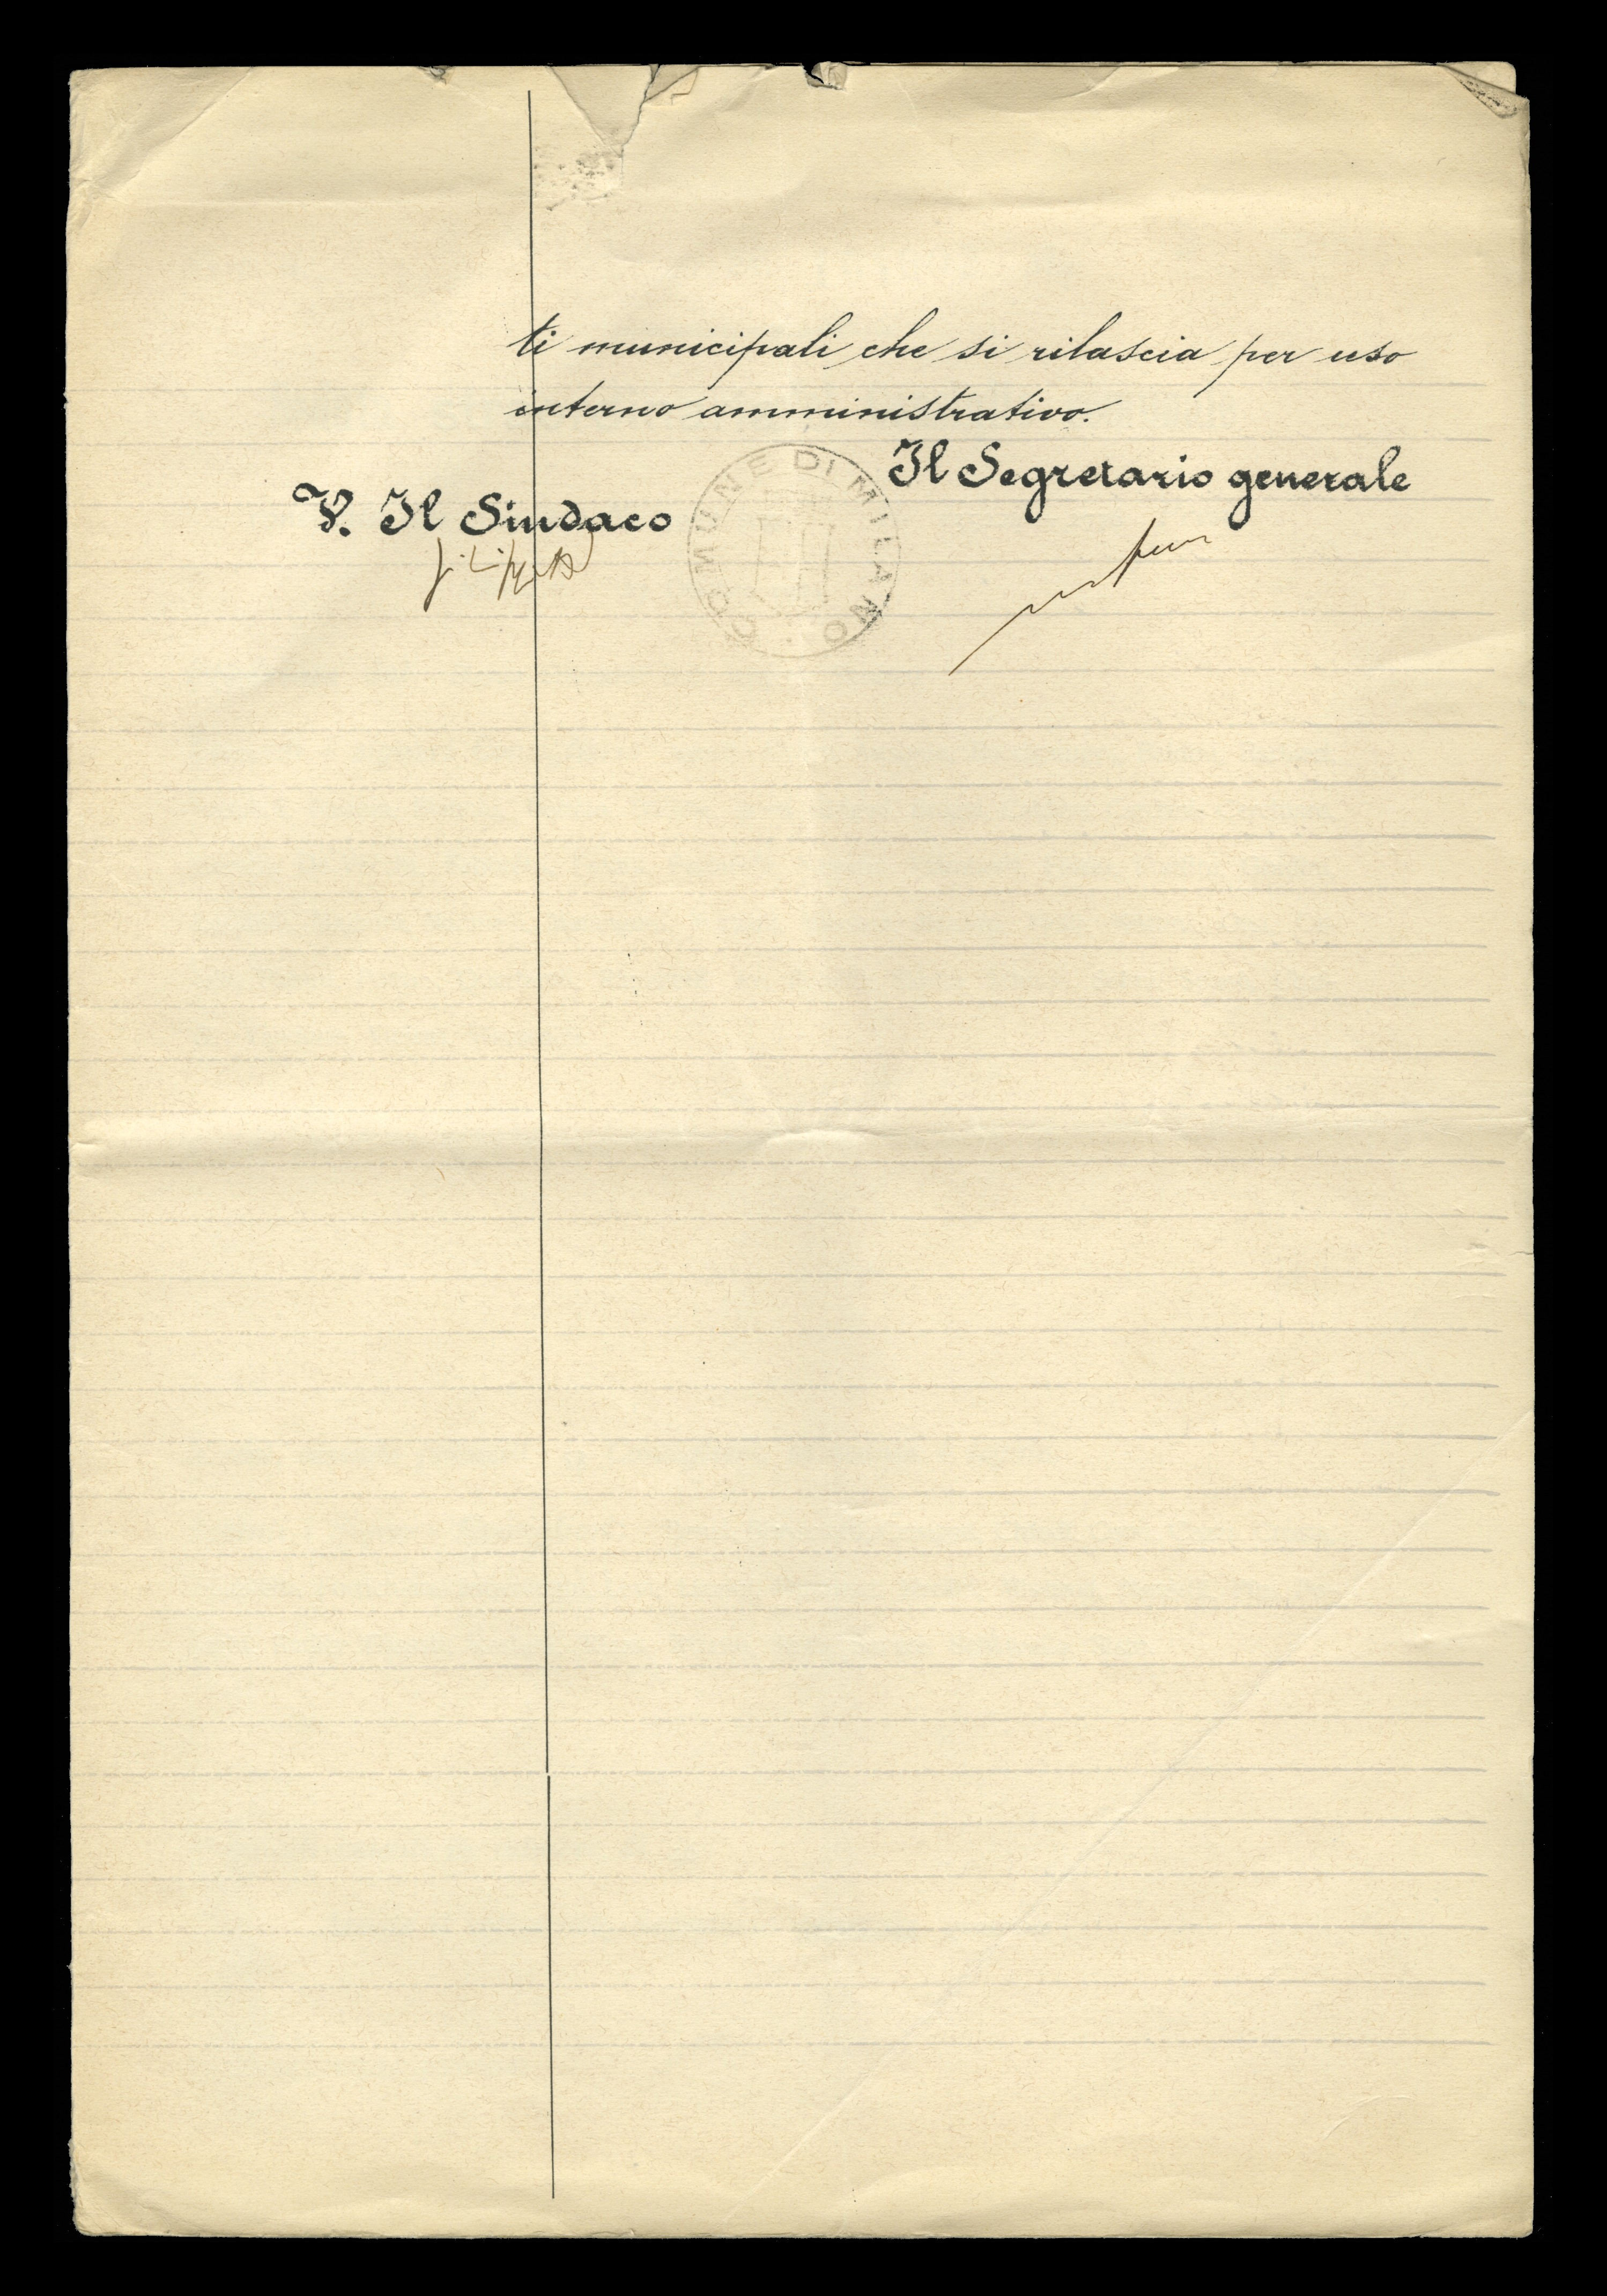 ti municipali che si rilascia per uso
interno amministrativo.
Il Segretario generale
V. Il Sindaco
COMUNE DI MILANO